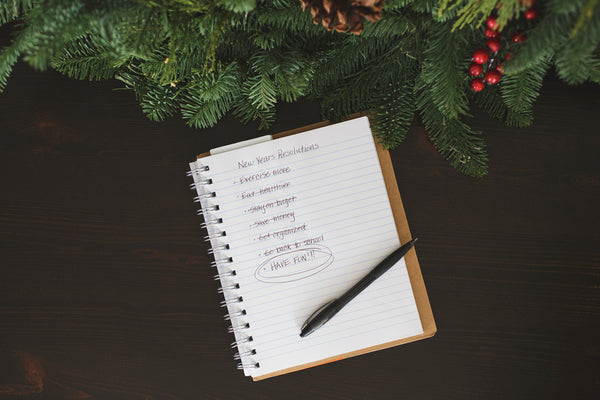 New Years Resolutions
• Exercise more
• Eat healthier
• Stay on buget
• Save money
• Get organized
• Go back to school
• HAVE FUN!!!